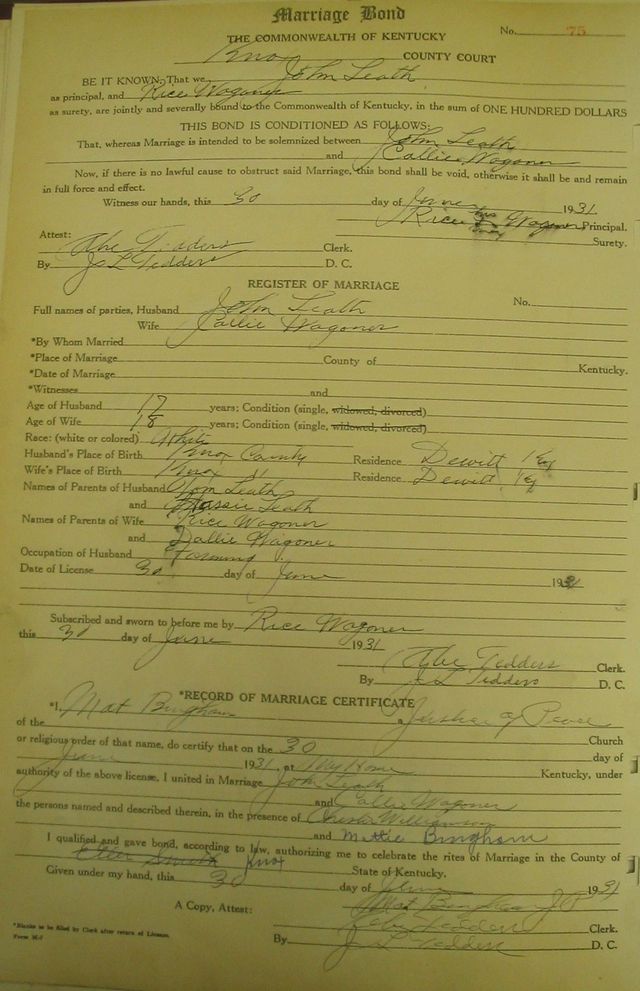 Marriage Bond
THE COMMONWEALTH OF KENTUCKY No. 75
Knox COUNTY COURT
BE IT KNOWN, That we John Leath
as principal, and Rice Wagoner
as surety, are jointly and severally bound to the Commonwealth of Kentucky, in the sum of ONE HUNDRED DOLLARS
THIS BOND IS CONDITIONED AS FOLLOWS:
That, whereas Marriage is intended to be solemnized between John Leath
and Callie Wagoner
Now, if there is no lawful cause to obstruct said Marriage, this bond shall be void, otherwise it shall be and remain
in full force and effect.
Witness our hands, this 30 day of June 1931
Rice his x Wagoner Principal.
Attest: Surety.
Abe Tedders Clerk.
By J L Tedders D. C.
REGISTER OF MARRIAGE
Full names of parties, Husband John Leath No.
Wife Callie Wagoner
*By Whom Married
*Place of Marriage County of Kentucky.
*Date of Marriage
*Witnesses and
Age of Husband 17 years; Condition (single, widowed, divorced)
Age of Wife 18 years; Condition (single, widowed, divorced)
Race: (white or colored) White
Husband's Place of Birth Knox County Residence Dewitt Ky
Wife's Place of Birth Knox " Residence Dewitt Ky
Names of Parents of Husband Tom Leath
and Leath
Names of Parents of Wife Rice Wagoner
and Wagoner
Occupation of Husband Farming
Date of License 30 day of June 1931
Subscribed and sworn to before me by Rice Wagoner
this 30 day of June 1931
Abe Tedders Clerk.
By J L Tedders D. C.
*RECORD OF MARRIAGE CERTIFICATE
*I, Mat Bingham a Justice of Peace
of the Church
or religious order of that name, do certify that on the 30 day of
June 1931, at My Home Kentucky, under
authority of the above license, I united in Marriage John Leath
and Callie Wagoner
the persons named and described therein, in the presence of Chester Williamson
and Mattie Bingham
I qualified and gave bond, according to law, authorizing me to celebrate the rites of Marriage in the County of
Knox State of Kentucky.
Given under my hand, this 30 day of June 1931
Mat Bingham J P
A Copy, Attest: Abe Tedders Clerk.
By J L Tedders D. C.
*Blanks to be filled by Clerk after return of License.